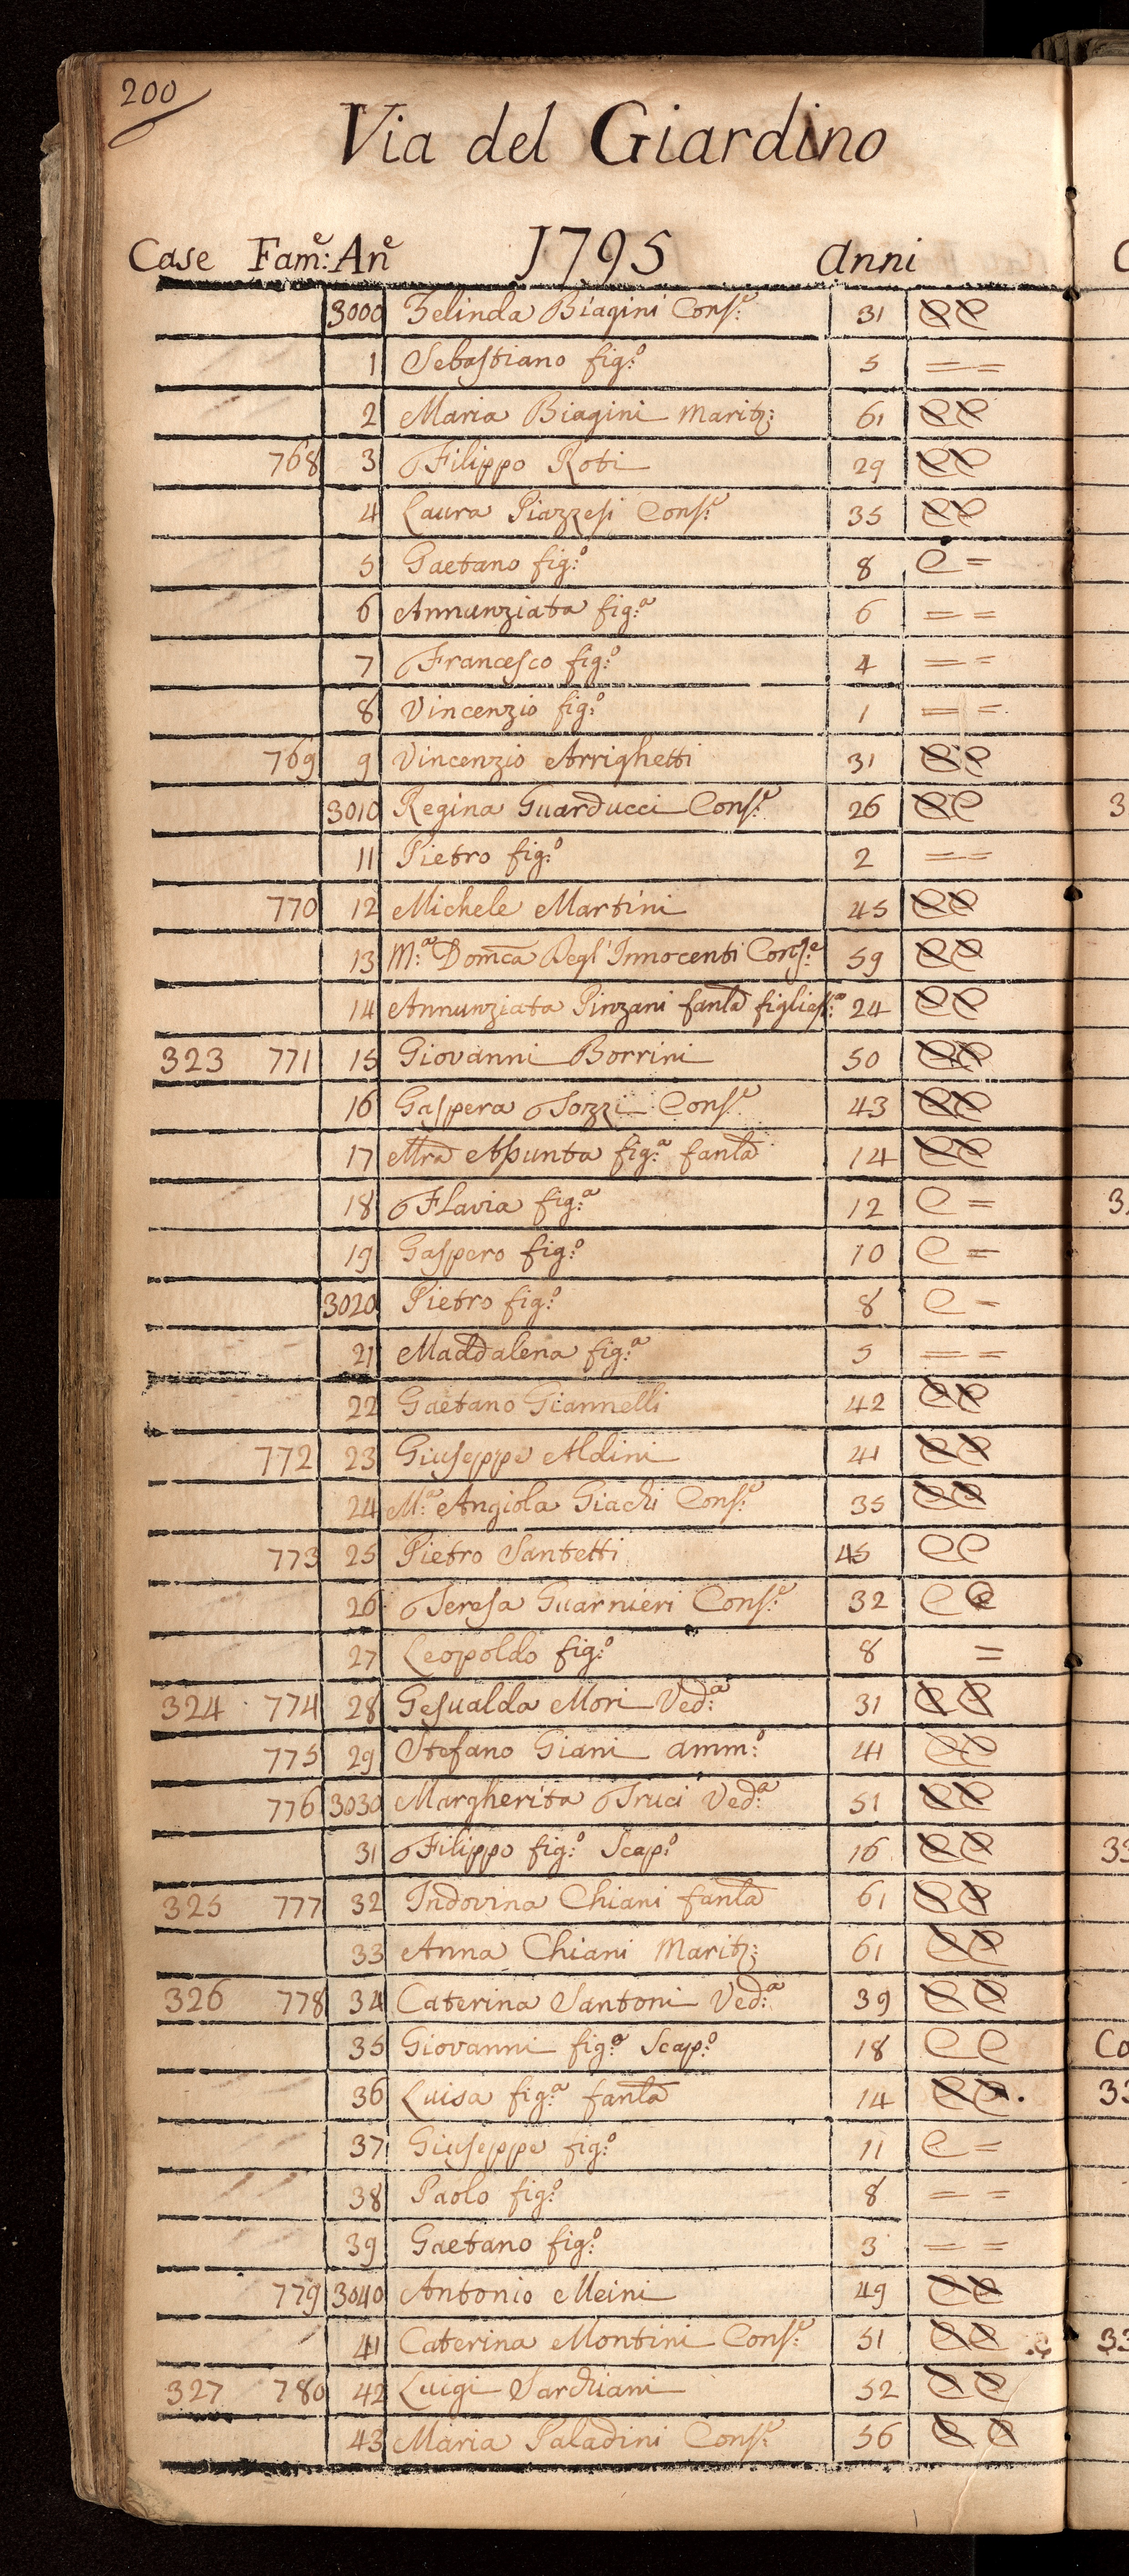 200
Via del Giardino
Case Fam:e An:e 1795 Anni
3000 Zelinda Biagini Cons:e 31 CC
1 Sebastiano fig:o 5 = =
2 Maria Biagini Marit: 61 CC
768 3 Filippo Roti 29 CC
4 Laura Piazzesi Cons:e 35 CC
5 Gaetano fig:o 8 C =
6 Annunziata fig:a 6 = =
7 Francesco fig:o 4 = =
8 Vincenzio fig:o 1 = =
769 9 Vincenzio Arrighetti 31 CC
3010 Regina Guarducci Cons:e 26 CC
11 Pietro fig:o 2 = =
770 12 Michele Martini 45 CC
13 M:a Dom̃ca Degl'Innocenti Cons:e 59 CC
14 Annunziata Pinzani fanla figlias:a 24 CC
323 771 15 Giovanni Borrini 50 CC
16 Gaspera Tozzi Cons:e 43 CC
17 Mra Assunta fig:a fanla 14 CC
18 Flavia fig:a 12 C =
19 Gaspero fig:o 10 C =
3020 Pietro fig:o 8 C =
21 Maddalena fig:a 5 = =
22 Gaetano Giannelli 42 CC
772 23 Giuseppe Aldini 41 CC
24 M:a Angiola Giachi Cons:e 35 CC
773 25 Pietro Santetti 45 CC
26 Teresa Guarnieri Cons:e 32 CC
27 Leopoldo fig:o 8 =
324 774 28 Gesualda Mori Ved:a 31 CC
775 29 Stefano Giani amm:o 41 CC
776 3030 Margherita Truci Ved:a 51 CC
31 Filippo fig:o Scap:o 16 CC
325 777 32 Indovina Chiani fanla 61 CC
33 Anna Chiani Marit: 61 CC
326 778 34 Caterina Santoni Ved:a 39 CC
35 Giovanni fig:o Scap:o 18 CC
36 Luisa fig:a fanla 14 CC.
37 Giuseppe fig:o 11 C =
38 Paolo fig:o 8 = =
39 Gaetano fig:o 3 = =
779 3040 Antonio Meini 49 CC
41 Caterina Montini Cons:e 51 CC
327 780 42 Luigi Sarchiani 52 CC
43 Maria Paladini Cons:e 56 CC